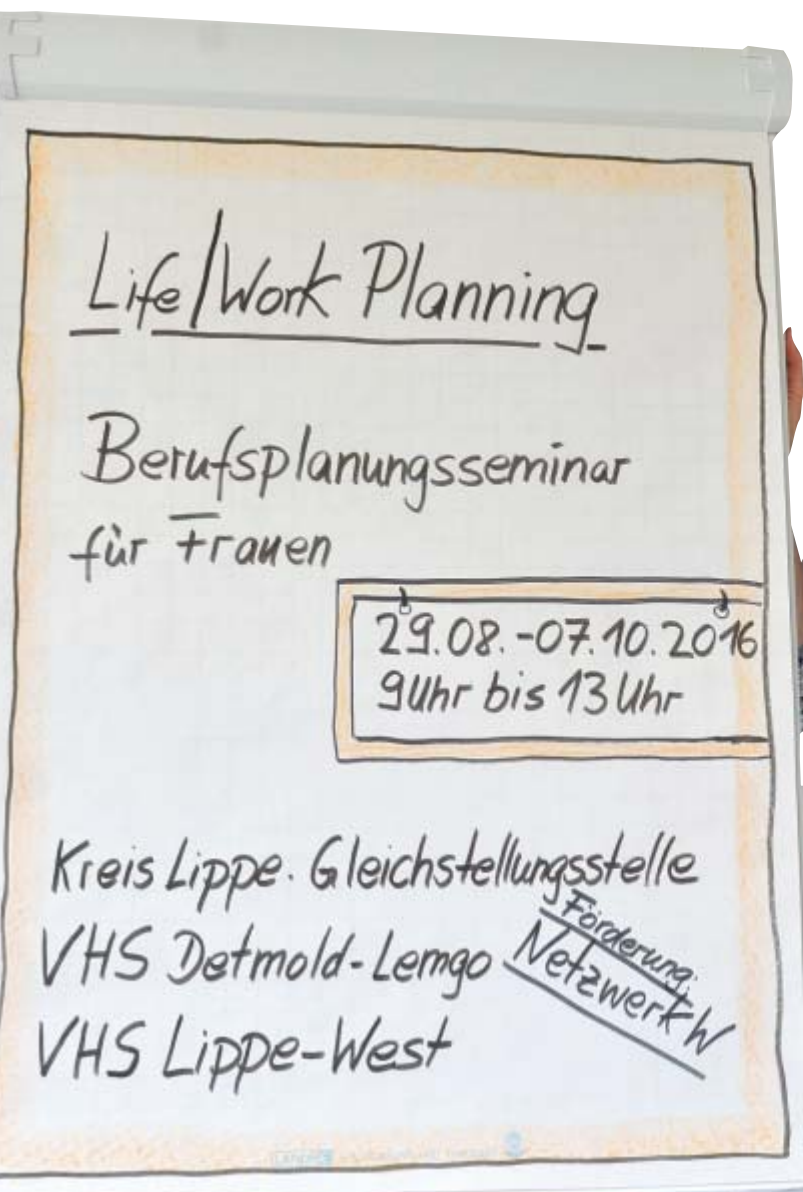 Life/Work Planning
Berufsplanungsseminar
für Frauen
29.08.-07.10.2016
9Uhr bis 13Uhr
Kreis Lippe. Gleichstellungsstelle
VHS Detmold-Lemgo
VHS Lippe-West
Förderung:
Netzwerk W